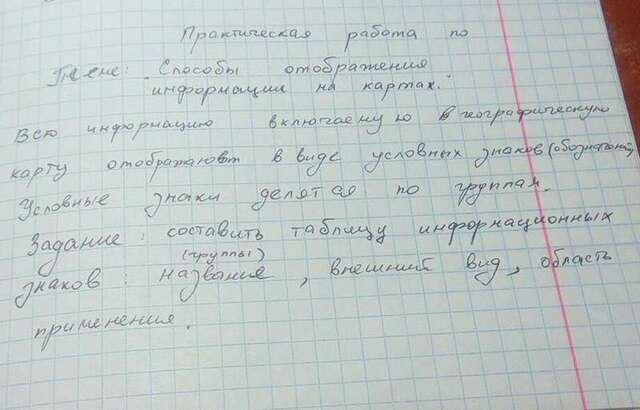 Практическая работа по
Теме: "Способы отображения
информации на картах."
Всю информацию включаемую в географическую
карту отображают в виде условных знаков (обозначений)
Условные знаки делятся по группам.
Задание: составить таблицу информационных
(группы)
знаков: название, внешний вид, область
применения.